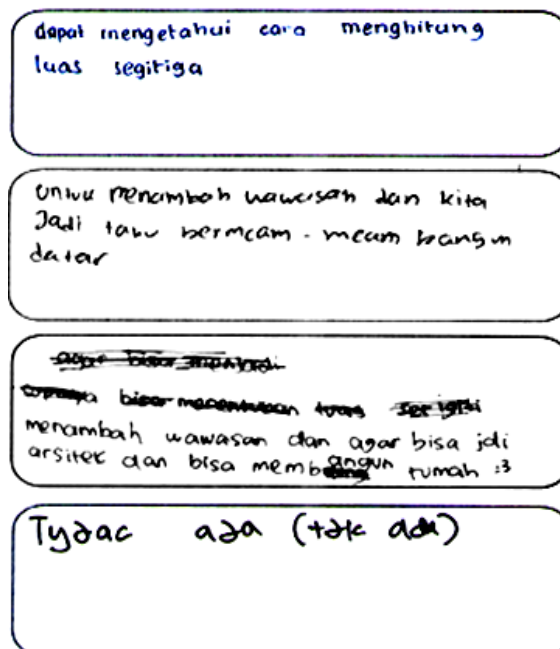 dapat mengetahui cara menghitung
luas segitiga
untuk menambah wawasan dan kita
Jadi tahu bermcam - mcam bangun
datar
agar bisa menjadi
supaya bisa menentukan luas
menambah wawasan dan agar bisa jdi
arsitek dan bisa membangun rumah :3
Tydac ada (tdk ada)